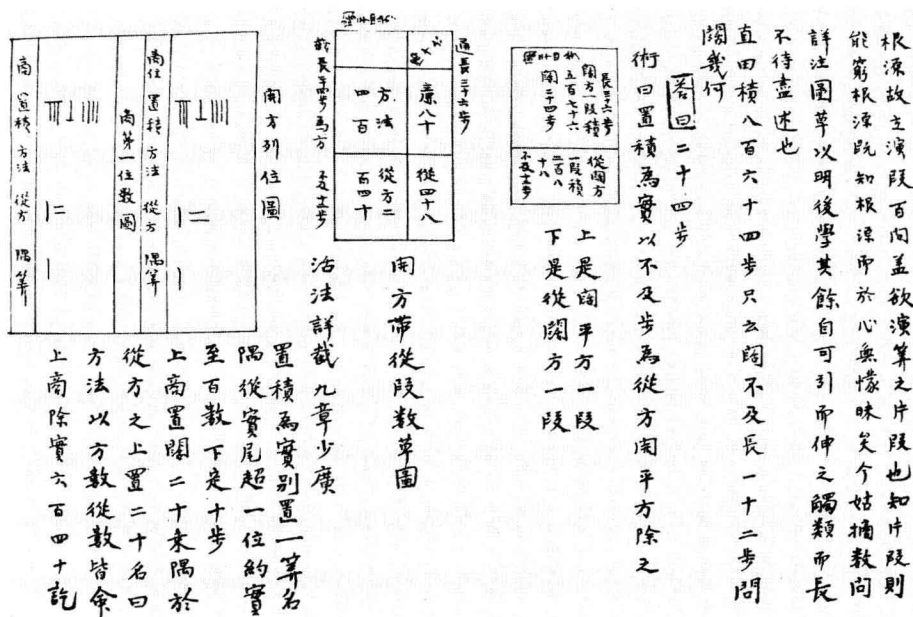 根源故立演段百問蓋欲演算之片段也知片段則
能窮根源既知根源而於心無懞昧矣今姑摘數問
詳注圖草以明後學其餘自可引而伸之觸類而長
不待盡述也
直田積八百六十四步只云闊不及長一十二步問
闊幾何
答曰二十四步
術曰置積為實以不及步為從方開平方除之
上是闊平方段
下是從闊方段
長三十六步
闊方一段積
五百七十六
闊二十四步
從闊方
一段積
二百八
十八
不及十二步
開方帶從段數草圖
通長三十六步
蓋八十
從四十八
方法
四百
從方二
百四十
截長二十四步為方
不及十二步
治法詳載九章少廣
開方列位圖
商位
置積
方法
從方
隅筭
商第一位數圖
商
置積
方法
從方
隅筭
置積為實別置一筭名
隅從實尾超一位約實
至百數下定十步
上商置闊二十來隅於
從方之上置二十名曰
方法以方數從數皆命
上商除實六百四十訖